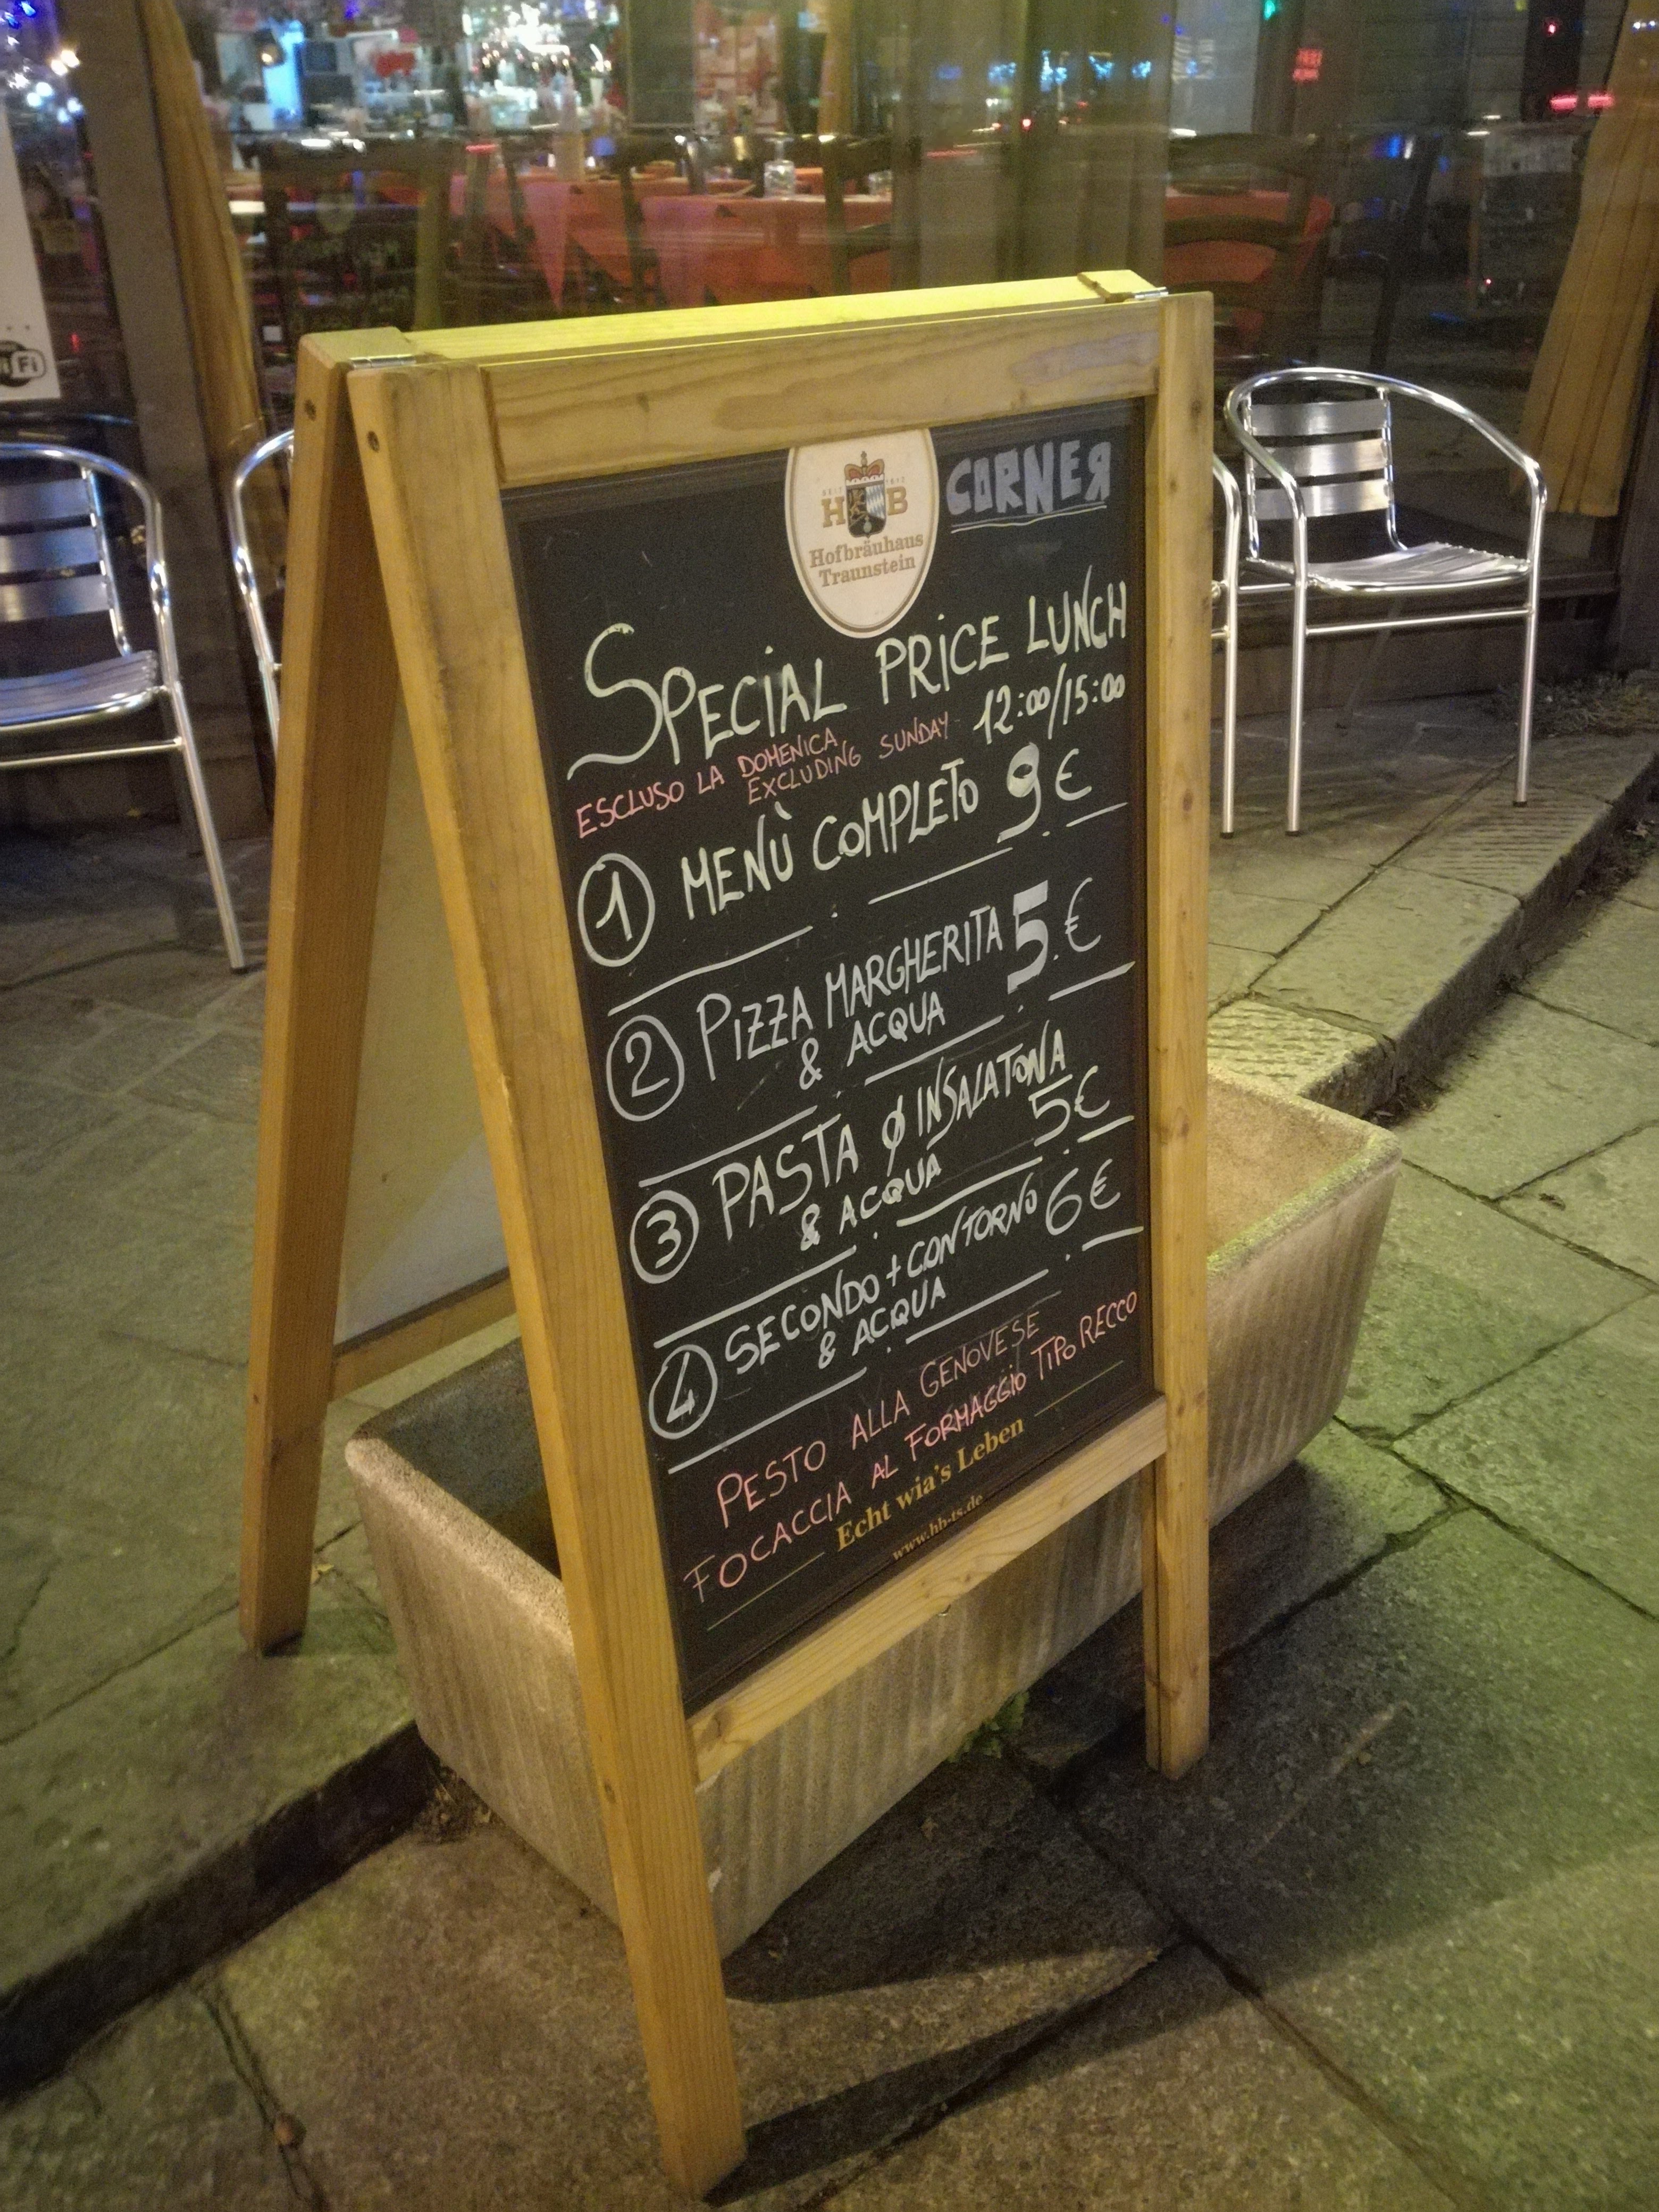 CORNER
H B
Hofbräuhaus
Traunstein
SPECIAL PRICE LUNCH
12:00/15:00
ESCLUSO LA DOMENICA
EXCLUDING SUNDAY
1 MENÙ COMPLETO 9€
2 PIZZA MARGHERITA 5.€
& ACQUA
3 PASTA O INSALATONA
& ACQUA 5€
4 SECONDO + CONTORNO 6€
& ACQUA
PESTO ALLA GENOVESE
FOCACCIA AL FORMAGGIO TIPO RECCO
Echt wia's Leben
www.hb-ts.de
Fi